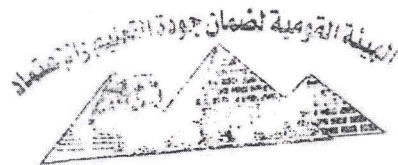 الهيئة القومية لضمان جودة التعليم والإعتماد